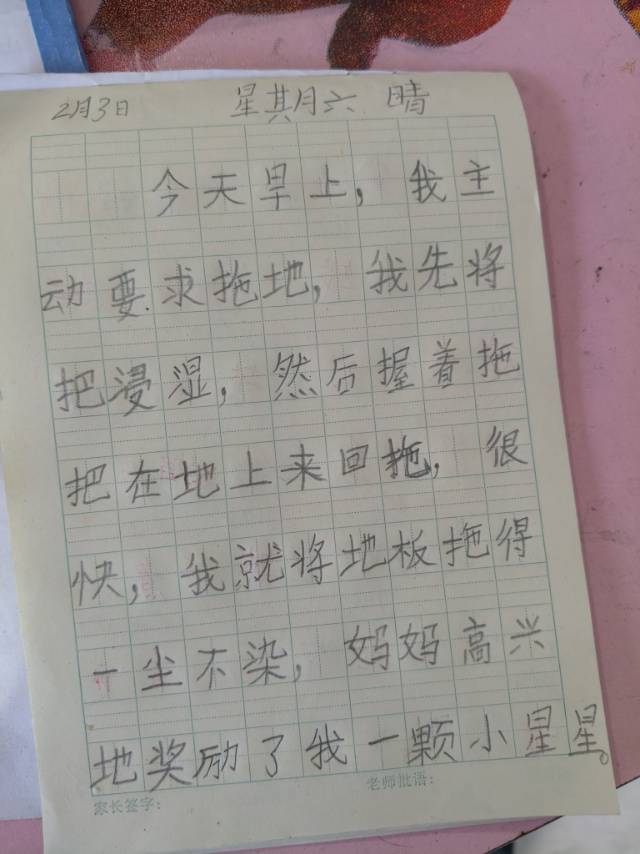 2月3日 星期六 晴
今天早上，我主
动要求拖地，我先将
把浸湿，然后握着拖
把在地上来回拖，很
快，我就将地板拖得
一尘不染，妈妈高兴
地奖励了我一颗小星星。
老师批语：
家长签字：